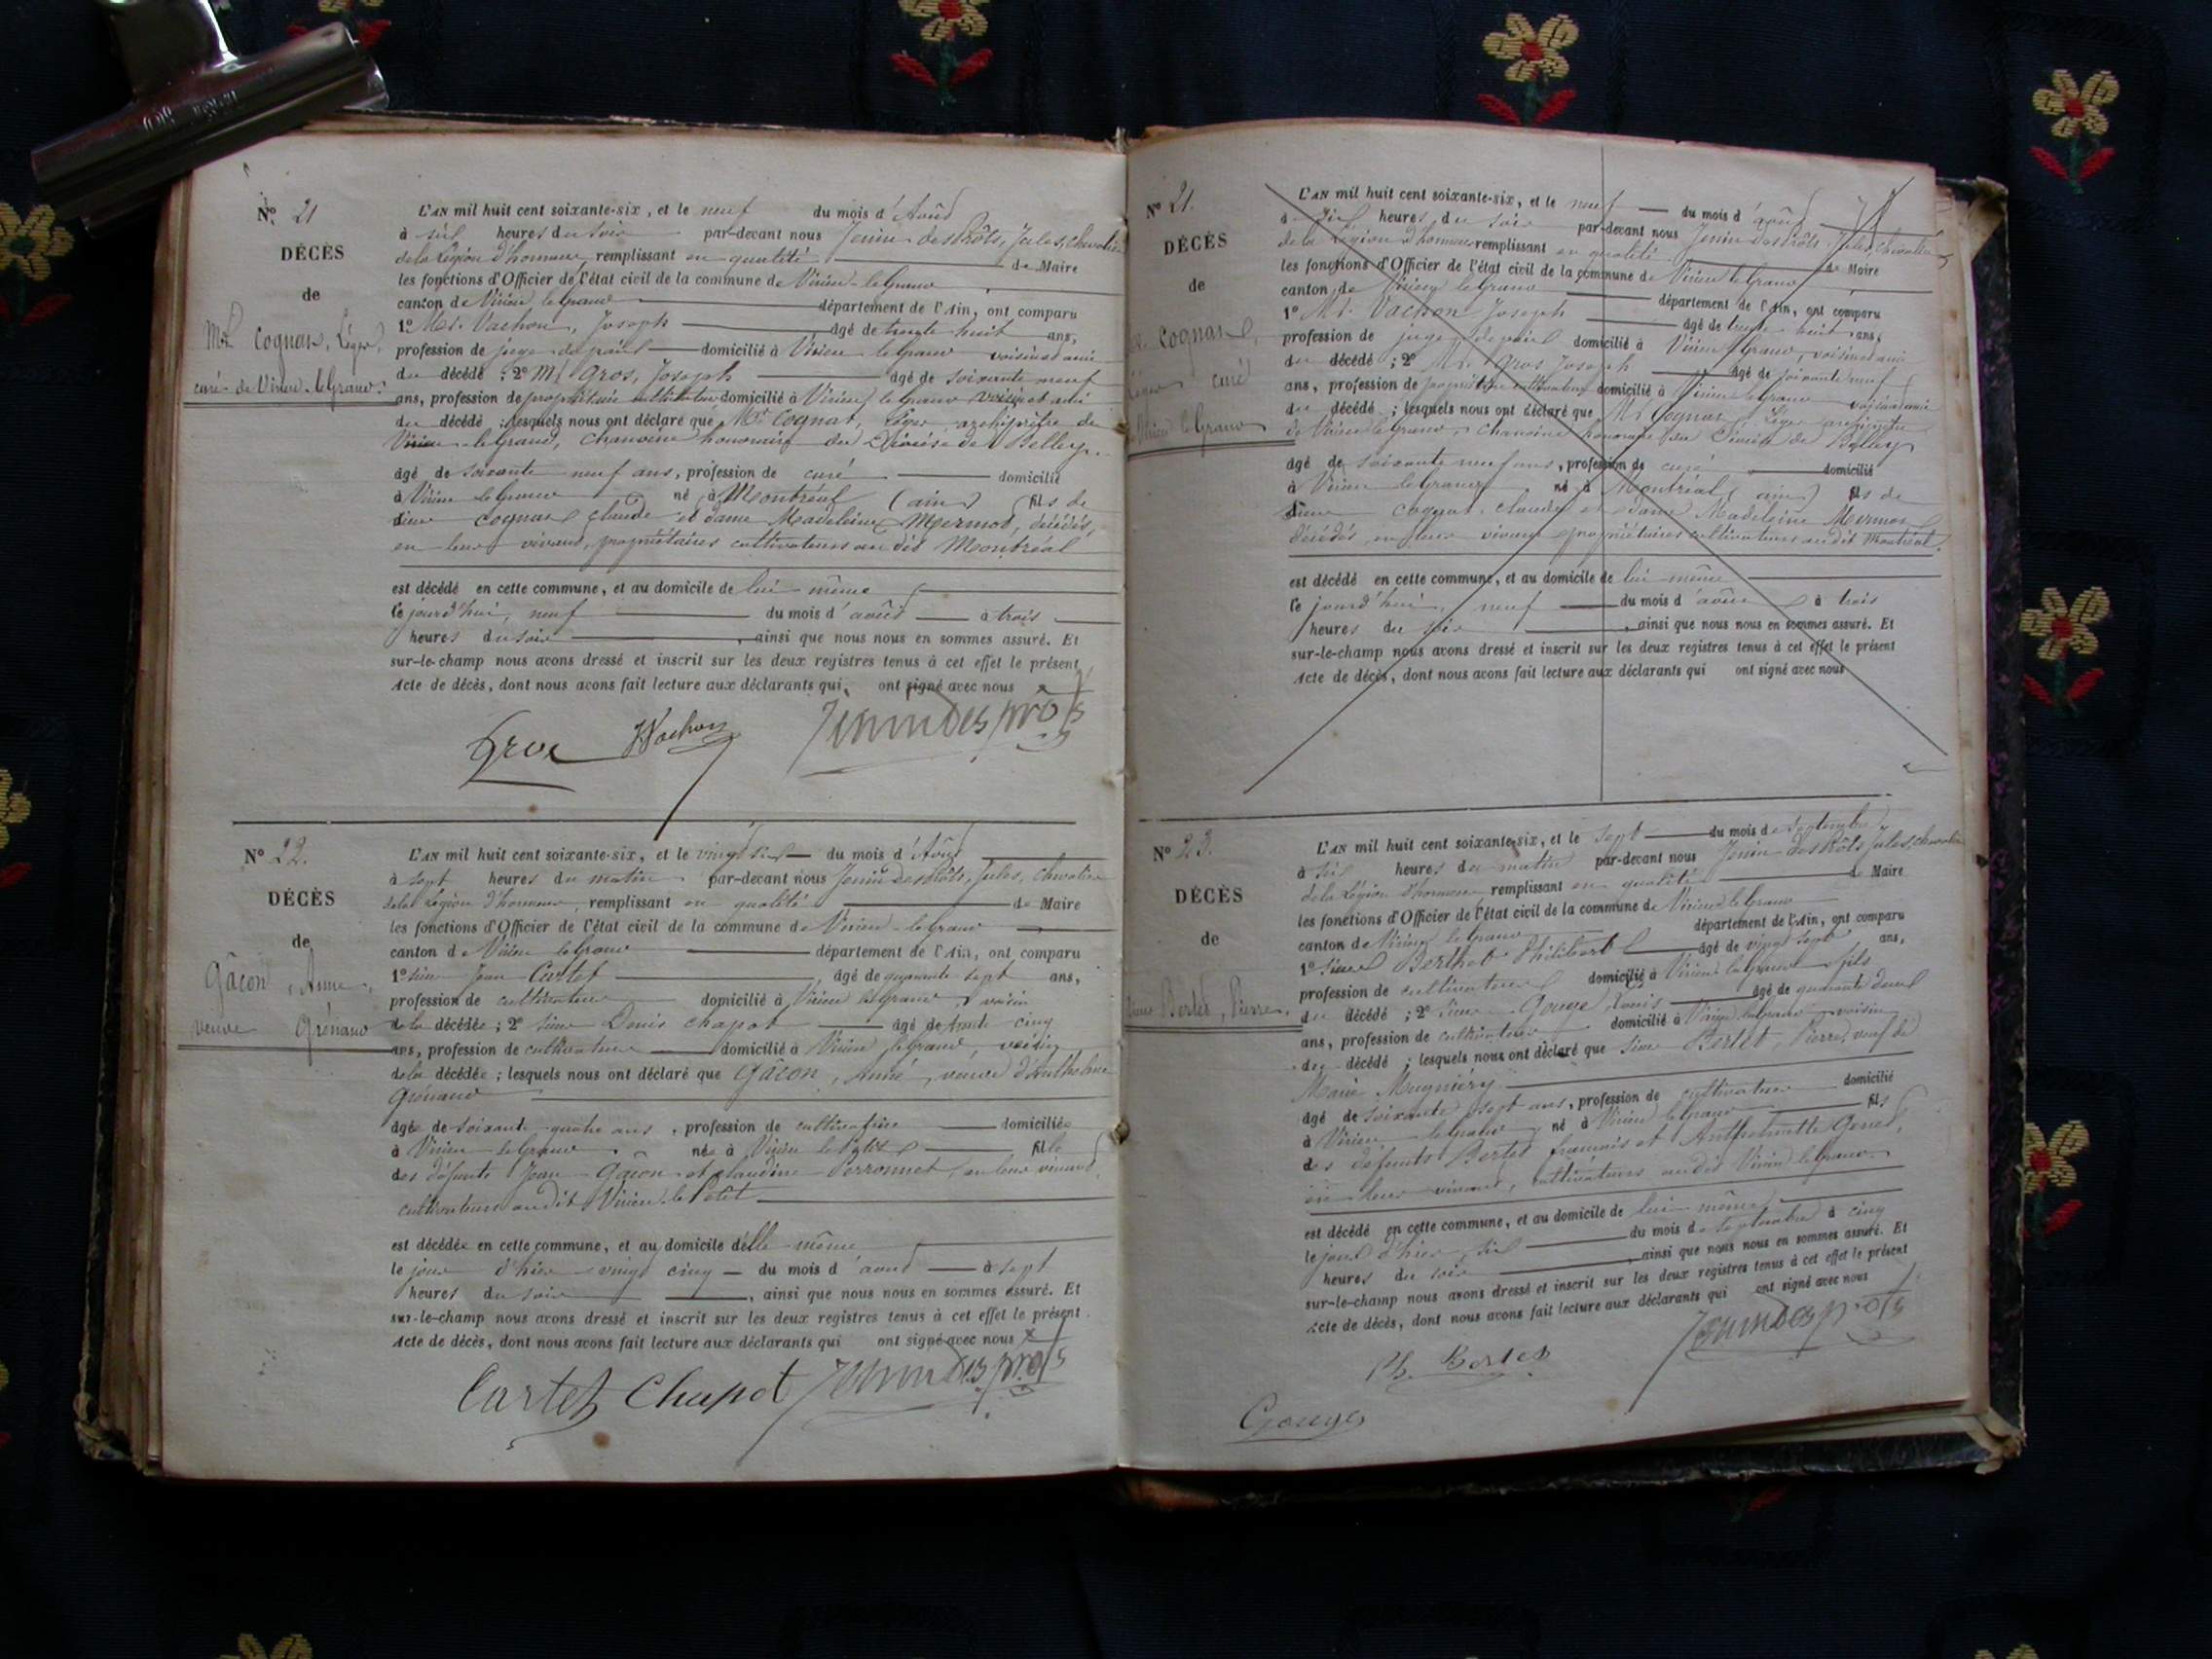 N° 21
DÉCÈS
de
Mr Cognat, Léger,
curé de Virieu-le-Grand.
L'AN mil huit cent soixante-six, et le neuf du mois d'Août
à six heures du soir par-devant nous Jenin-desprôts, Jules, chevalier
de la Légion d'honneur, remplissant en qualité de Maire
les fonctions d'Officier de l'état civil de la commune de Virieu-le-Grand
canton de Virieu le Grand département de l'Ain, ont comparu
1° Mr. Vachon, Joseph âgé de trente huit ans,
profession de juge de paix domicilié à Virieu le Grand voisin et ami
du décédé ; 2° Mr. Gros, Joseph âgé de soixante neuf
ans, profession de propriétaire cultivateur domicilié à Virieu le Grand voisin et ami
du décédé ; lesquels nous ont déclaré que Mr. Cognat, Léger, archiprêtre de
Virieu-le-Grand, Chanoine honoraire du Diocèse de Belley.
âgé de soixante neuf ans, profession de curé domicilié
à Virieu le Grand né à Montréal (ain) fils de
sieur Cognat Claude et dame Madeleine Mermot, décédés,
en leur vivant, propriétaires cultivateurs au dit Montréal
est décédé en cette commune, et au domicile de lui-même
le jourd'hui, neuf du mois d'août à trois
heures du soir, ainsi que nous nous en sommes assuré. Et
sur-le-champ nous avons dressé et inscrit sur les deux registres tenus à cet effet le présent
Acte de décès, dont nous avons fait lecture aux déclarants qui ont signé avec nous
Gros JVachon Jenindesprots
N° 22.
DÉCÈS
de
Gâcon, Anne,
veuve Grénaud
L'AN mil huit cent soixante-six, et le vingt six du mois d'Août
à sept heures du matin par-devant nous Jenin desprôts, Jules, chevalier
de la Légion d'honneur, remplissant en qualité de Maire
les fonctions d'Officier de l'état civil de la commune de Virieu-le-Grand
canton de Virieu le Grand département de l'Ain, ont comparu
1° sieur Jean Cartet, âgé de quarante sept ans,
profession de cultivateur domicilié à Virieu le Grand, voisin
de la décédée ; 2° sieur Denis Chapot âgé de trente cinq
ans, profession de cultivateur domicilié à Virieu le Grand, voisin
de la décédée ; lesquels nous ont déclaré que Gâcon, Anne, veuve d'Anthelme
Grénaud
âgée de soixante quatre ans, profession de cultivatrice domiciliée
à Virieu le Grand, née à Virieu le Petit fille
des défunts Jean Gâcon et Claudine Perronnet, en leur vivant,
cultivateurs audit Virieu-le-Petit
est décédée en cette commune, et au domicile d'elle-même
le jour d'hier vingt cinq du mois d'août à sept
heures du soir, ainsi que nous nous en sommes assuré. Et
sur-le-champ nous avons dressé et inscrit sur les deux registres tenus à cet effet le présent
Acte de décès, dont nous avons fait lecture aux déclarants qui ont signé avec nous
Cartet Chapot Jenindesprots
N° 21.
DÉCÈS
de
Cognat,
Léger curé
de Virieu le Grand
L'AN mil huit cent soixante-six, et le neuf du mois d'août
à six heures du soir par-devant nous Jenin desprôts, Jules, chevalier
de la Légion d'honneur remplissant en qualité de Maire
les fonctions d'Officier de l'état civil de la commune de Virieu le Grand
canton de Virieu le Grand département de l'Ain, ont comparu
1° Mr. Vachon Joseph âgé de trente huit ans,
profession de juge de paix domicilié à Virieu le Grand, voisin et ami
du décédé ; 2° Mr. Gros Joseph âgé de soixante neuf
ans, profession de propriétaire cultivateur domicilié à Virieu le Grand voisin et ami
du décédé ; lesquels nous ont déclaré que Mr. Cognat Léger archiprêtre
de Virieu le Grand, Chanoine honoraire du Diocèse de Belley
âgé de soixante neuf ans, profession de curé domicilié
à Virieu le Grand né à Montréal (ain) fils de
sieur Cognat, Claude et dame Madeleine Mermot
décédés, en leur vivant propriétaires cultivateurs audit Montréal.
est décédé en cette commune, et au domicile de lui-même
le jourd'hui, neuf du mois d'août à trois
heures du soir, ainsi que nous nous en sommes assuré. Et
sur-le-champ nous avons dressé et inscrit sur les deux registres tenus à cet effet le présent
Acte de décès, dont nous avons fait lecture aux déclarants qui ont signé avec nous
N° 23.
DÉCÈS
de
Bertet, Pierre,
L'AN mil huit cent soixante-six, et le sept du mois de Septembre
à six heures du matin par-devant nous Jenin desprôts Jules, chevalier
de la Légion d'honneur, remplissant en qualité de Maire
les fonctions d'Officier de l'état civil de la commune de Virieu le Grand
canton de Virieu le Grand département de l'Ain, ont comparu
1° sieur Berthet Philibert âgé de vingt sept ans,
profession de cultivateur domicilié à Virieu le Grand fils
du décédé ; 2° sieur Gouge, Louis âgé de quarante deux
ans, profession de cultivateur domicilié à Virieu le Grand voisin
du décédé ; lesquels nous ont déclaré que sieur Bertet, Pierre, veuf de
Marie Mugniéry
âgé de soixante sept ans, profession de cultivateur domicilié
à Virieu le Grand né à Virieu le Grand fils
des défunts Bertet françois et Anthelmette
en leur vivant, cultivateurs audit Virieu le Grand
est décédé en cette commune, et au domicile de lui-même
le jour d'hier, six du mois de septembre à cinq
heures du soir, ainsi que nous nous en sommes assuré. Et
sur-le-champ nous avons dressé et inscrit sur les deux registres tenus à cet effet le présent
Acte de décès, dont nous avons fait lecture aux déclarants qui ont signé avec nous
Ph. Bertet Jenindesprots
Gouge